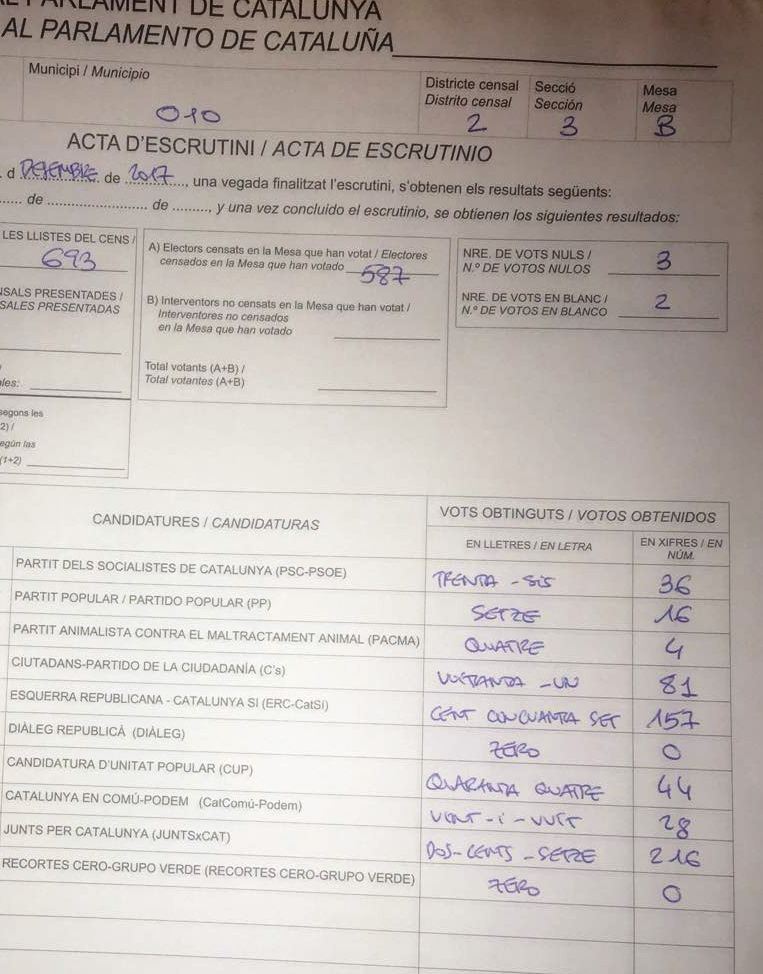 AL PARLAMENT DE CATALUNYA
AL PARLAMENTO DE CATALUÑA
Municipi / Municipio
Districte censal
Distrito censal
Secció
Sección
Mesa
Mesa
010
2
3
B
ACTA D'ESCRUTINI / ACTA DE ESCRUTINIO
d DESEMBRE de 2017, una vegada finalitzat l'escrutini, s'obtenen els resultats següents:
de de , y una vez concluido el escrutinio, se obtienen los siguientes resultados:
LES LLISTES DEL CENS /
693
NSALS PRESENTADES /
SALES PRESENTADAS
les:
segons les
2) /
egún las
(1+2)
A) Electors censats en la Mesa que han votat / Electores
censados en la Mesa que han votado 587
B) Interventors no censats en la Mesa que han votat /
Interventores no censados
en la Mesa que han votado
Total votants (A+B) /
Total votantes (A+B)
NRE. DE VOTS NULS /
N.º DE VOTOS NULOS 3
NRE. DE VOTS EN BLANC /
N.º DE VOTOS EN BLANCO 2
CANDIDATURES / CANDIDATURAS
VOTS OBTINGUTS / VOTOS OBTENIDOS
EN LLETRES / EN LETRA
EN XIFRES / EN
NÚM.
PARTIT DELS SOCIALISTES DE CATALUNYA (PSC-PSOE) TRENTA-SIS 36
PARTIT POPULAR / PARTIDO POPULAR (PP) SETZE 16
PARTIT ANIMALISTA CONTRA EL MALTRACTAMENT ANIMAL (PACMA) QUATRE 4
CIUTADANS-PARTIDO DE LA CIUDADANÍA (C's) VUITANTA-UN 81
ESQUERRA REPUBLICANA - CATALUNYA SI (ERC-CatSI) CENT CINCUANTA SET 157
DIÀLEG REPUBLICÀ (DIÀLEG) ZERO 0
CANDIDATURA D'UNITAT POPULAR (CUP) QUARANTA QUATRE 44
CATALUNYA EN COMÚ-PODEM (CatComú-Podem) VINT-i-VUIT 28
JUNTS PER CATALUNYA (JUNTSxCAT) DOS-CENTS-SETZE 216
RECORTES CERO-GRUPO VERDE (RECORTES CERO-GRUPO VERDE) ZERO 0